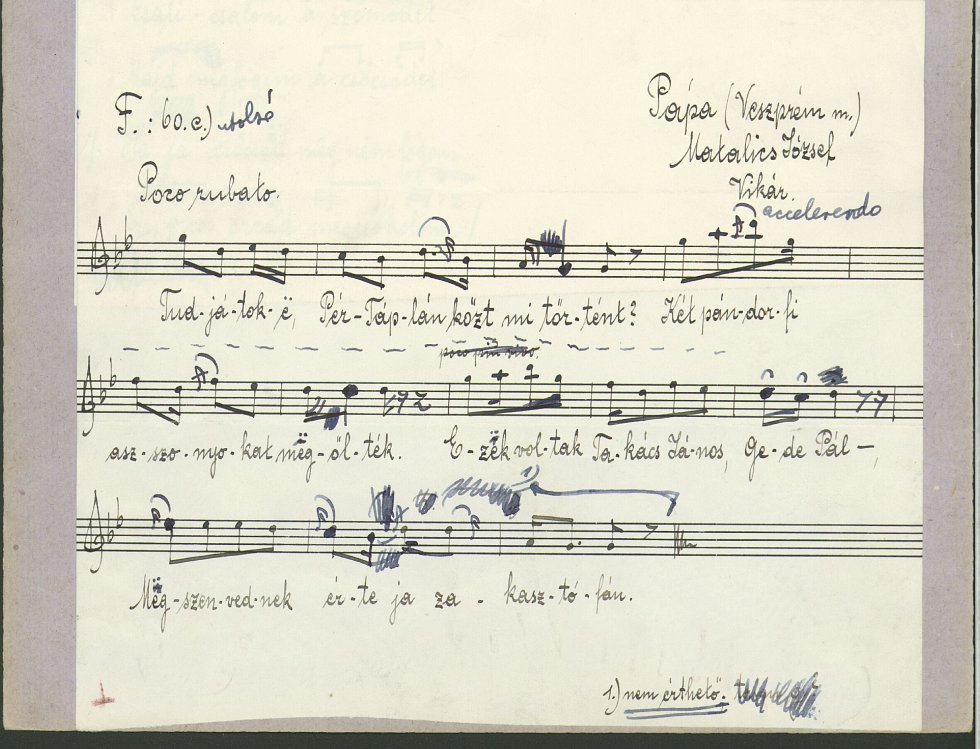 F. : 60.c.) utolsó
Pápa (Veszprém m.)
Matalics József
Vikár.
Poco rubato.
accelerendo
Tud-já-tok-ë, Pér-Táp-lán közt mi tör-tént? Két pán-dor-fi
poco più vivo
asz-szo-nyo-kat mëg-öl-ték. E-zëk vol-tak Ta-kács Já-nos, Ge-de Pál-,
1)
Mëg-szen-ved-nek ér-te ja za - kasz-tó-fán.
1.) nem érthető.